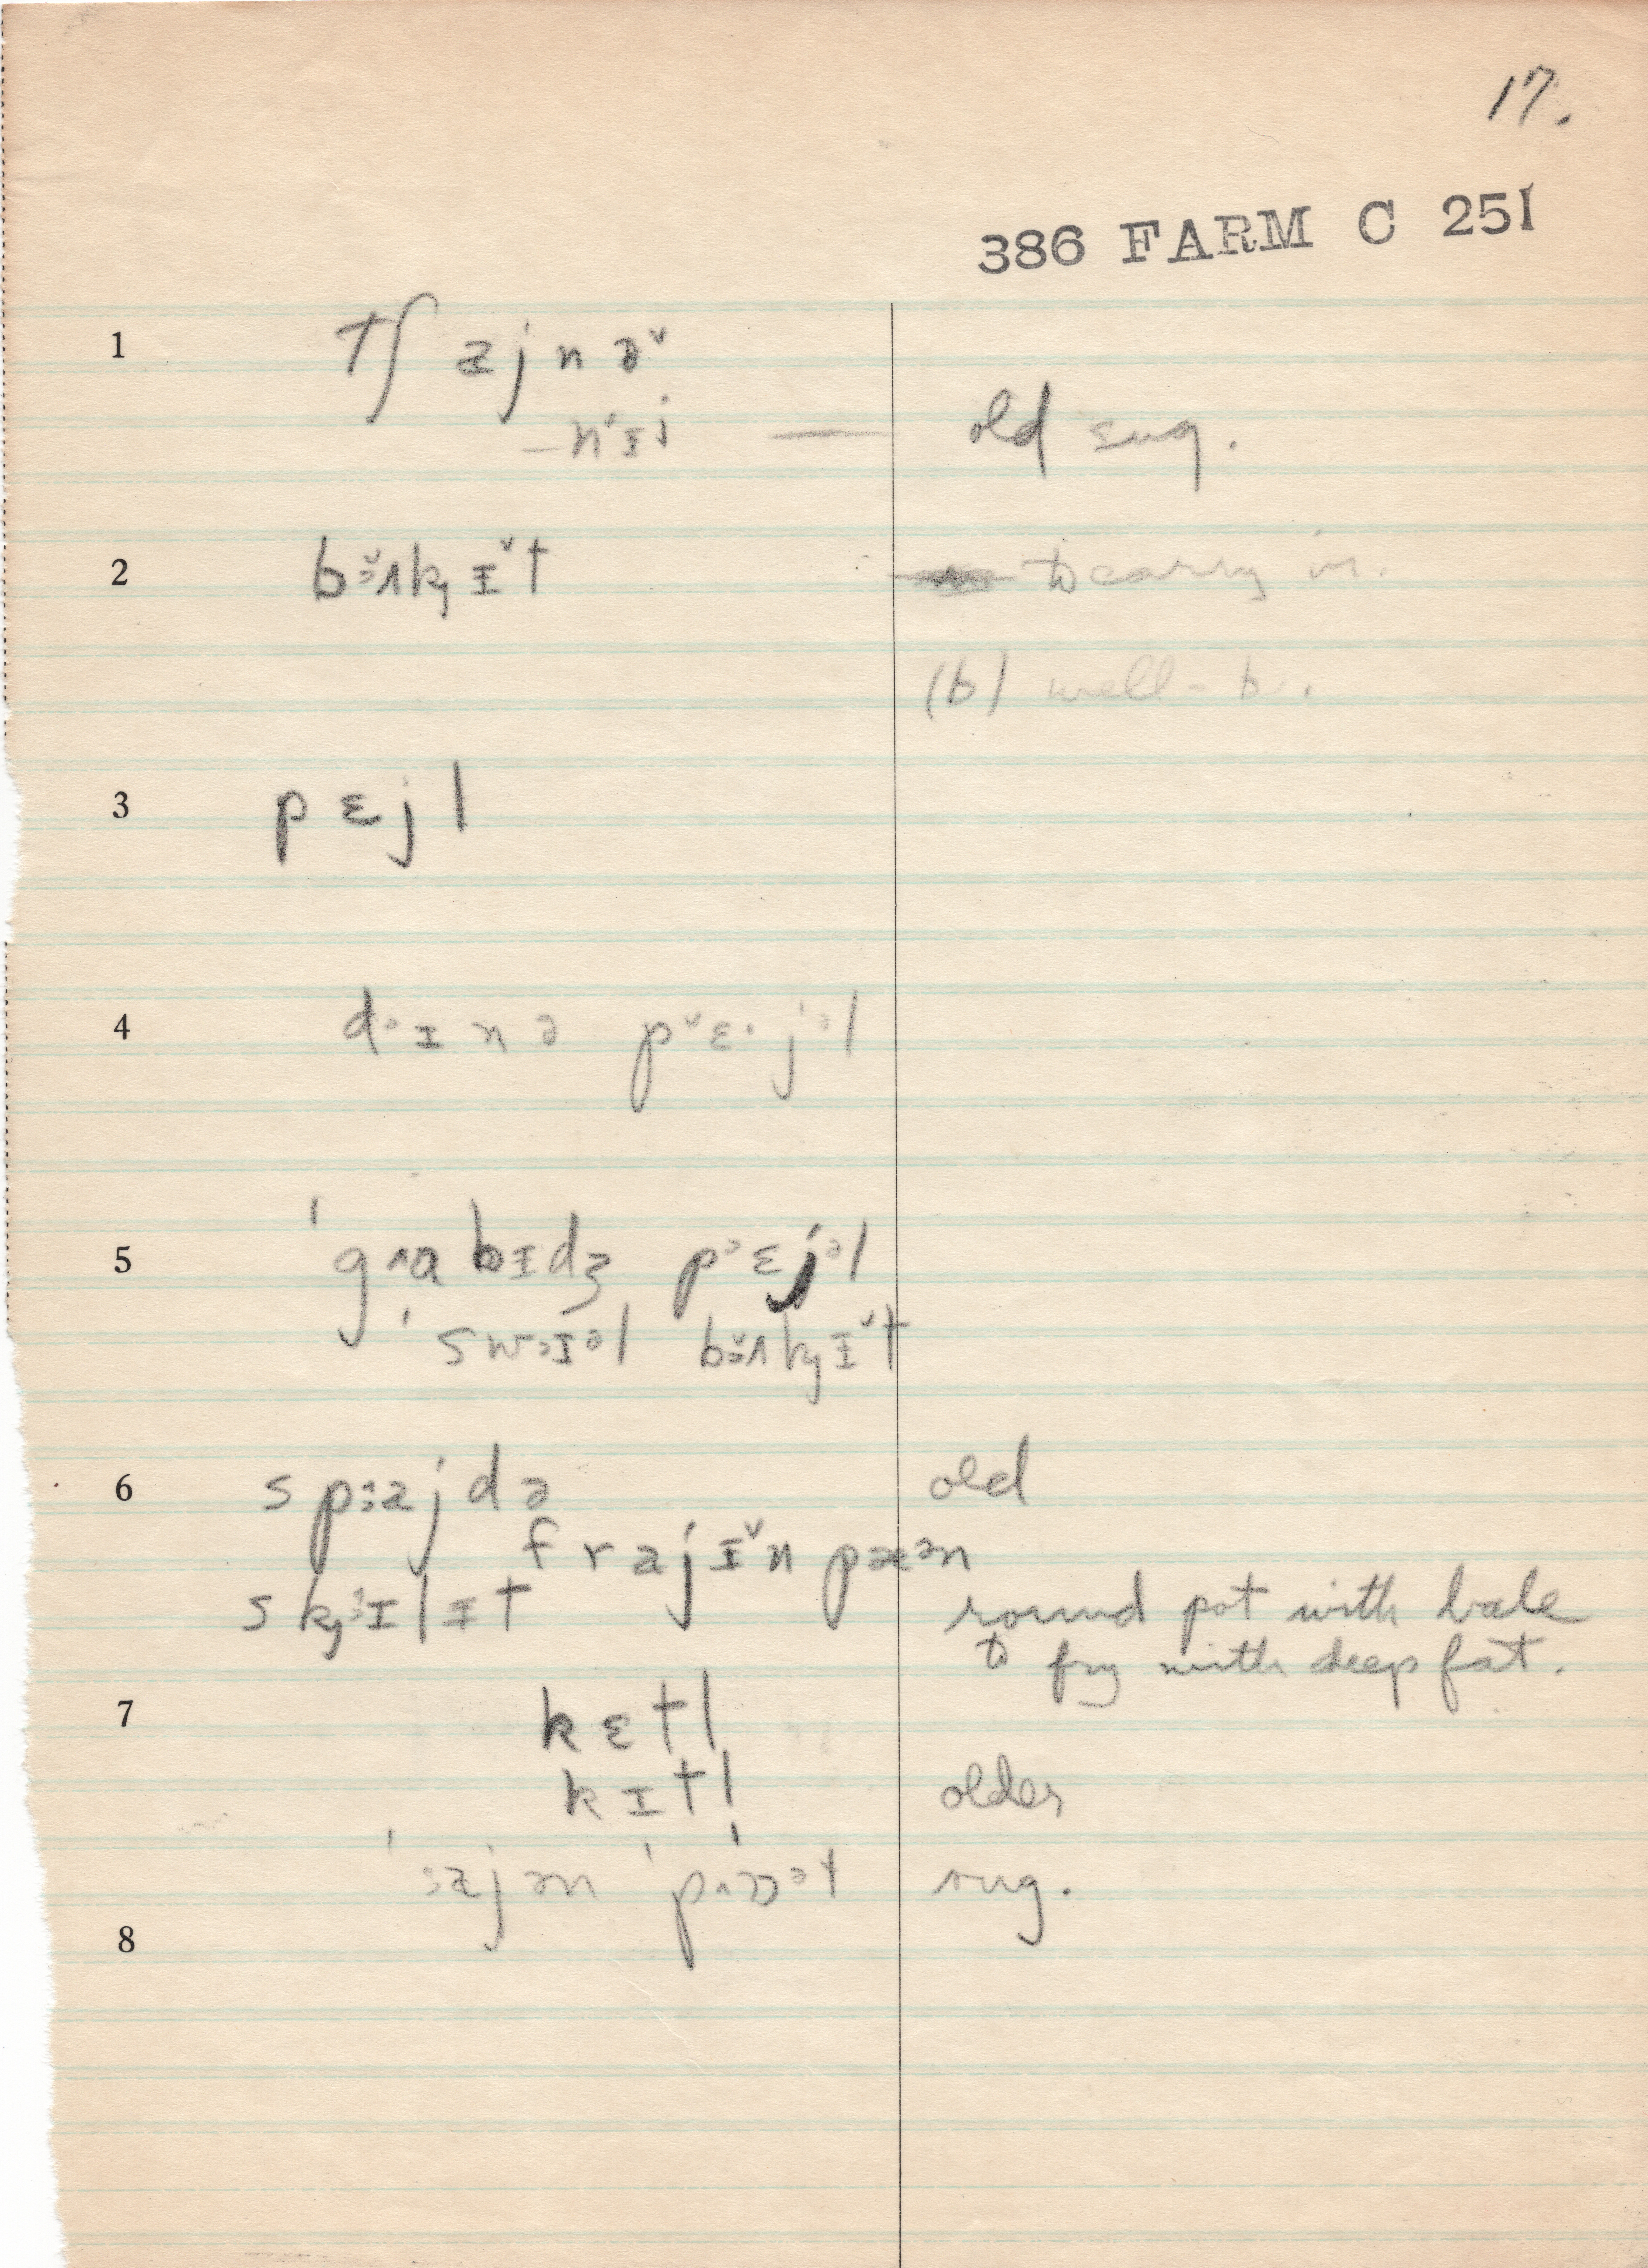 17.
386 FARM C 251
1 tʃ ajnə˅
–n'ɪj — old sug.
2 bɜ˅ʌkɪ˅t to carry in.
(b) well-b.
3 pɛjl
4 dɪnə p˅ɛ·jəl
5 'gʌɑbɪdʒ pɛjəl
'swɪəl bɜ˅ʌkɪ˅t
6 spajdə old
frajɪ˅n pæən
skɪlɪt round pot with bale
to fry with deep fat.
7 kɛtl
kɪtl older
'ajən 'pɒət sug.
8